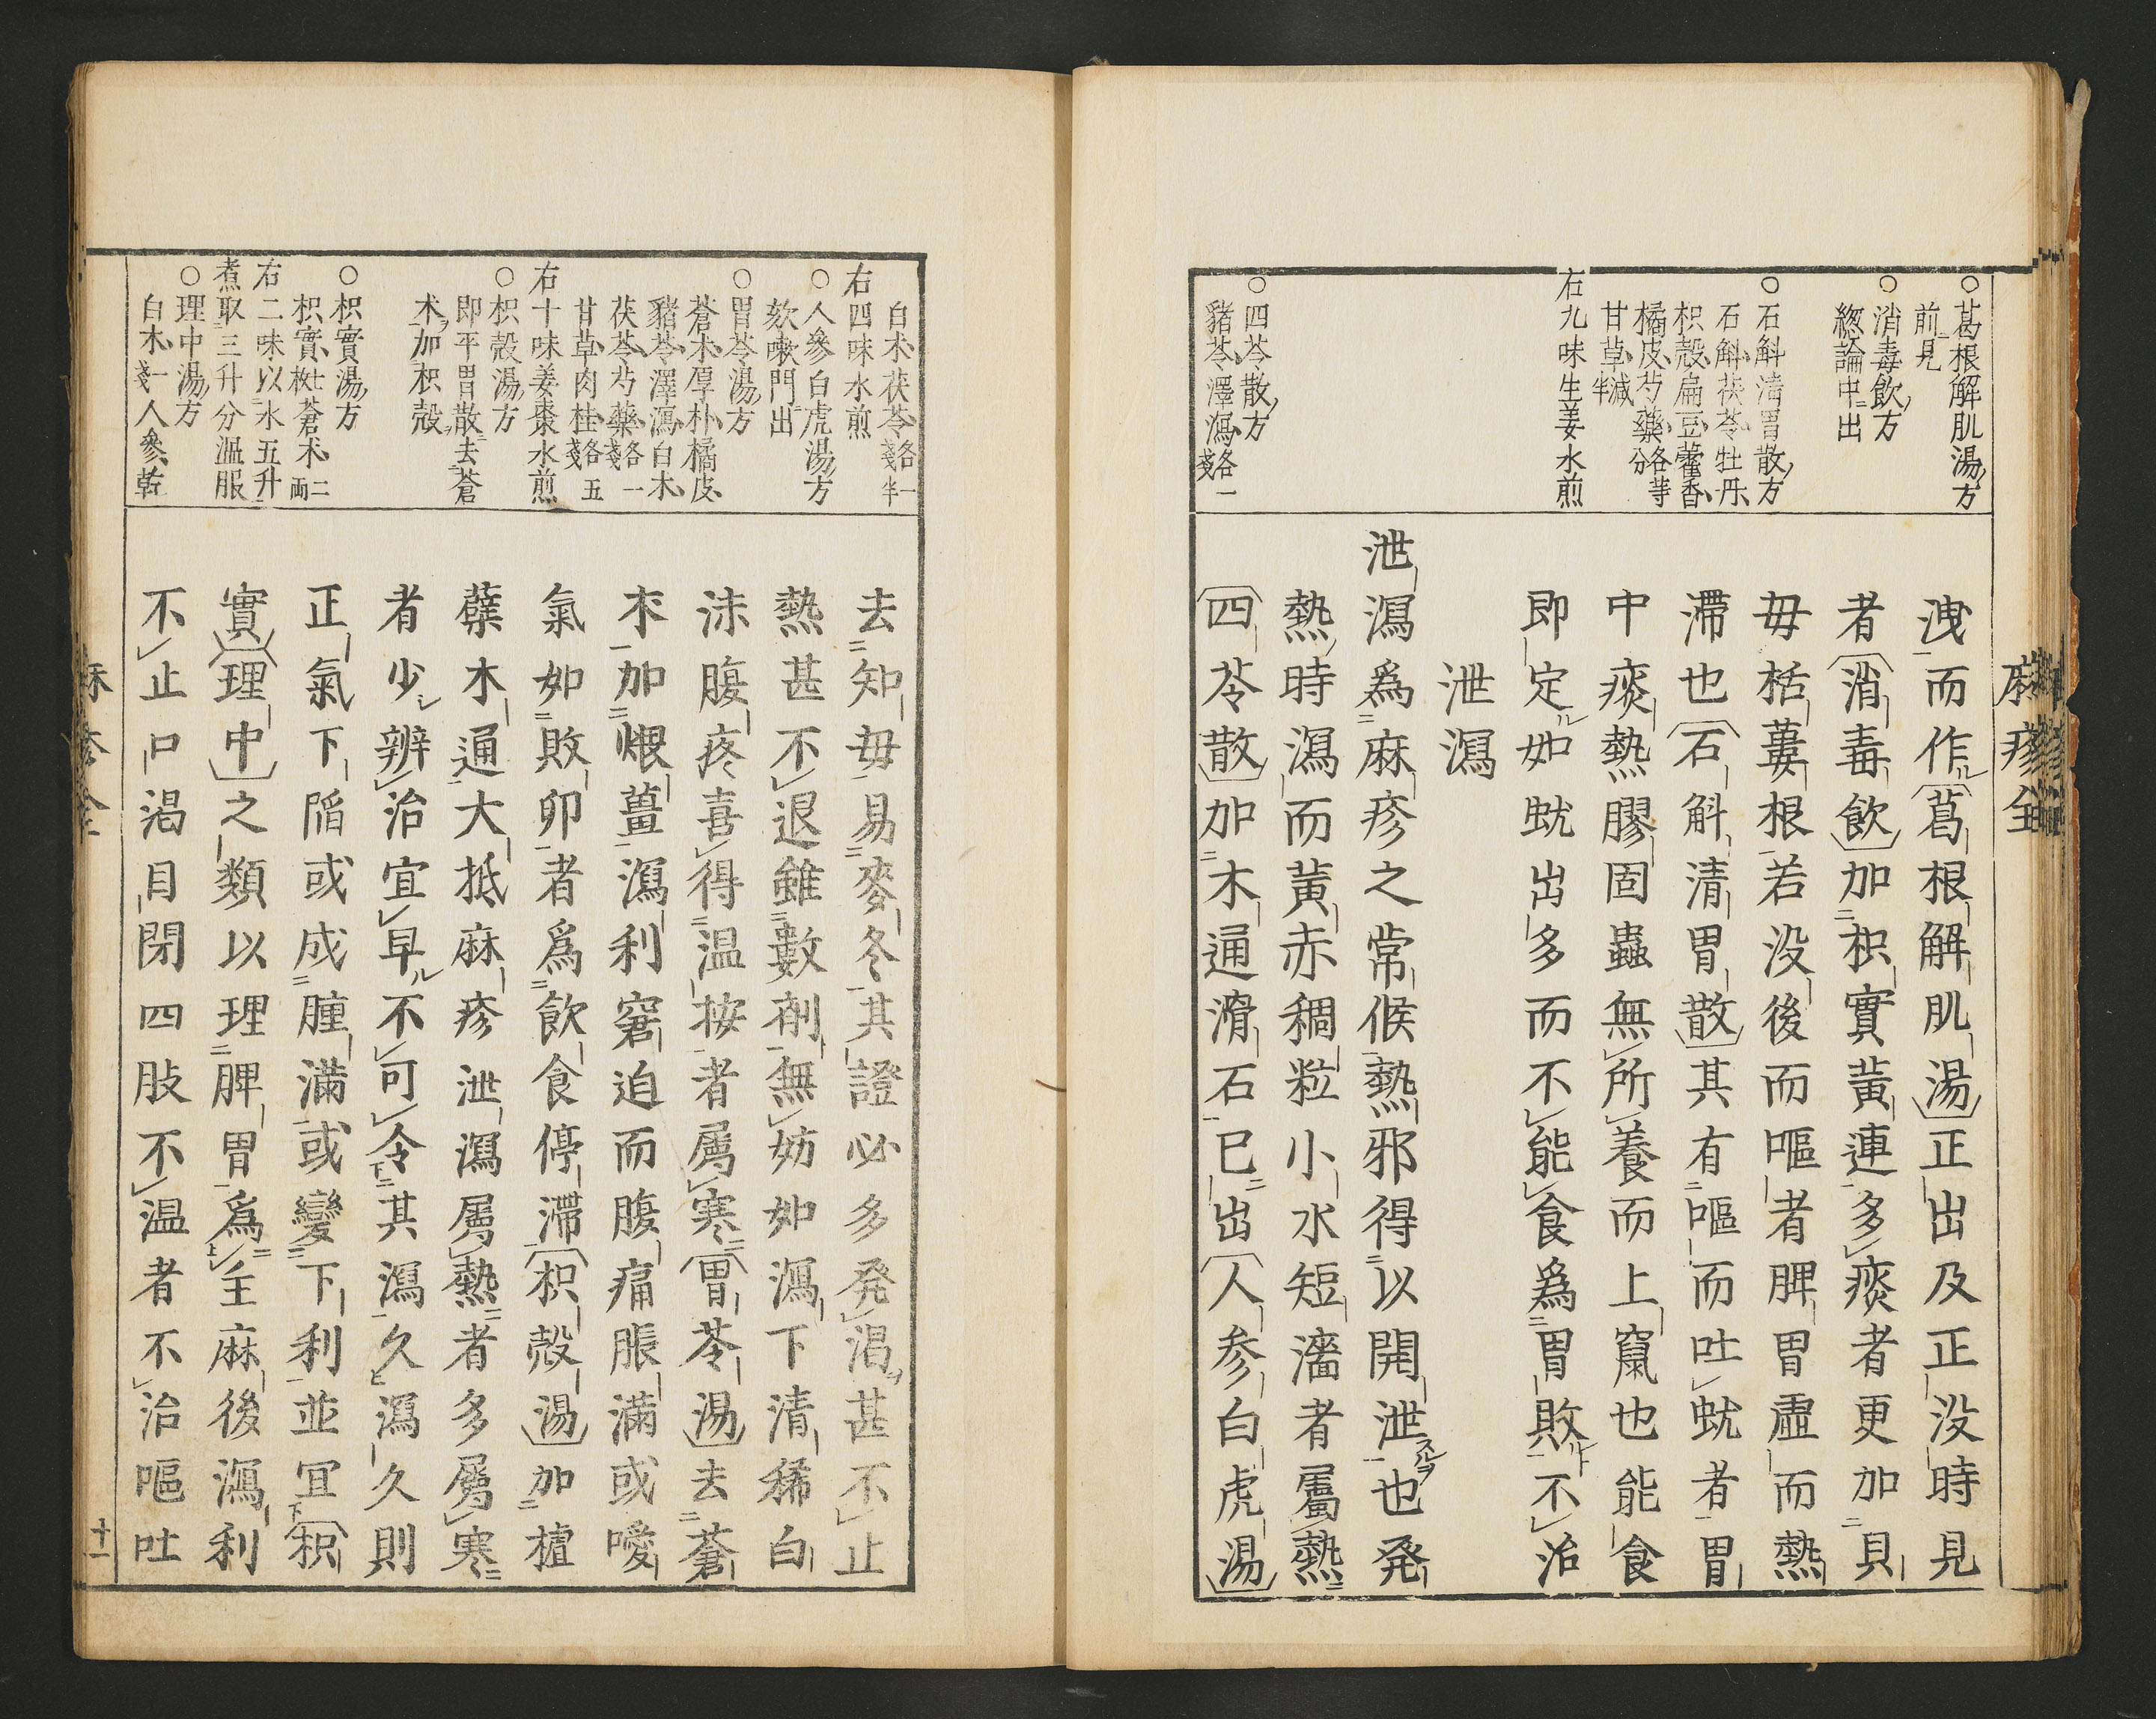 ○葛根解肌湯方
前見
○消毒飲方
緫論中出
○石斛清胃散方
石斛茯苓牡丹
枳殻扁豆藿香
橘皮芍藥各等分
甘草減半
右九味生姜水煎
○四苓散方
豬苓澤瀉各一戔
洩而作葛根解肌湯正出及正没時見
者消毒飲加枳實黄連多痰者更加貝
毋栝蔞根若没後而嘔者脾胃虛而熱
滯也石斛清胃散其有嘔而吐蚘者胃
中痰熱膠固蟲無所養而上竄也能食
即定如蚘出多而不能食爲胃敗不治
泄瀉
泄瀉爲麻疹之常候熱邪得以開泄也発
熱時瀉而黄赤稠粒小水短濇者屬熱
四苓散加木通滑石已出人参白虎湯
白朮茯苓各一戔半
右四味水煎
○人參白虎湯方
欬嗽門出
○胃苓湯方
蒼朮厚朴橘皮
豬苓澤瀉白朮
茯苓芍藥各一戔
甘草肉桂各五戔
右十味姜棗水煎
○枳殻湯方
即平胃散去蒼
朮加枳殻
○枳實湯方
枳實七枚蒼朮二両
右二味以水五升
煮取三升分溫服
○理中湯方
白朮一戔人參乾
去知毋易麥冬其證必多発渇甚不止
熱甚不退雖數劑無妨如瀉下清稀白
沫腹疼喜得温按者属寒胃苓湯去蒼
朩加煨薑瀉利窘迫而腹痛脹滿或噯
氣如敗卵者爲飲食停滯枳殻湯加櫨
蘗木通大抵麻疹泄瀉属熱者多属寒
者少辨治宜早不可令其瀉久瀉久則
正氣下陷或成腫滿或變下利並冝枳
實理中之類以理脾胃爲主麻後瀉利
不止口渇目閉四肢不温者不治嘔吐
十一